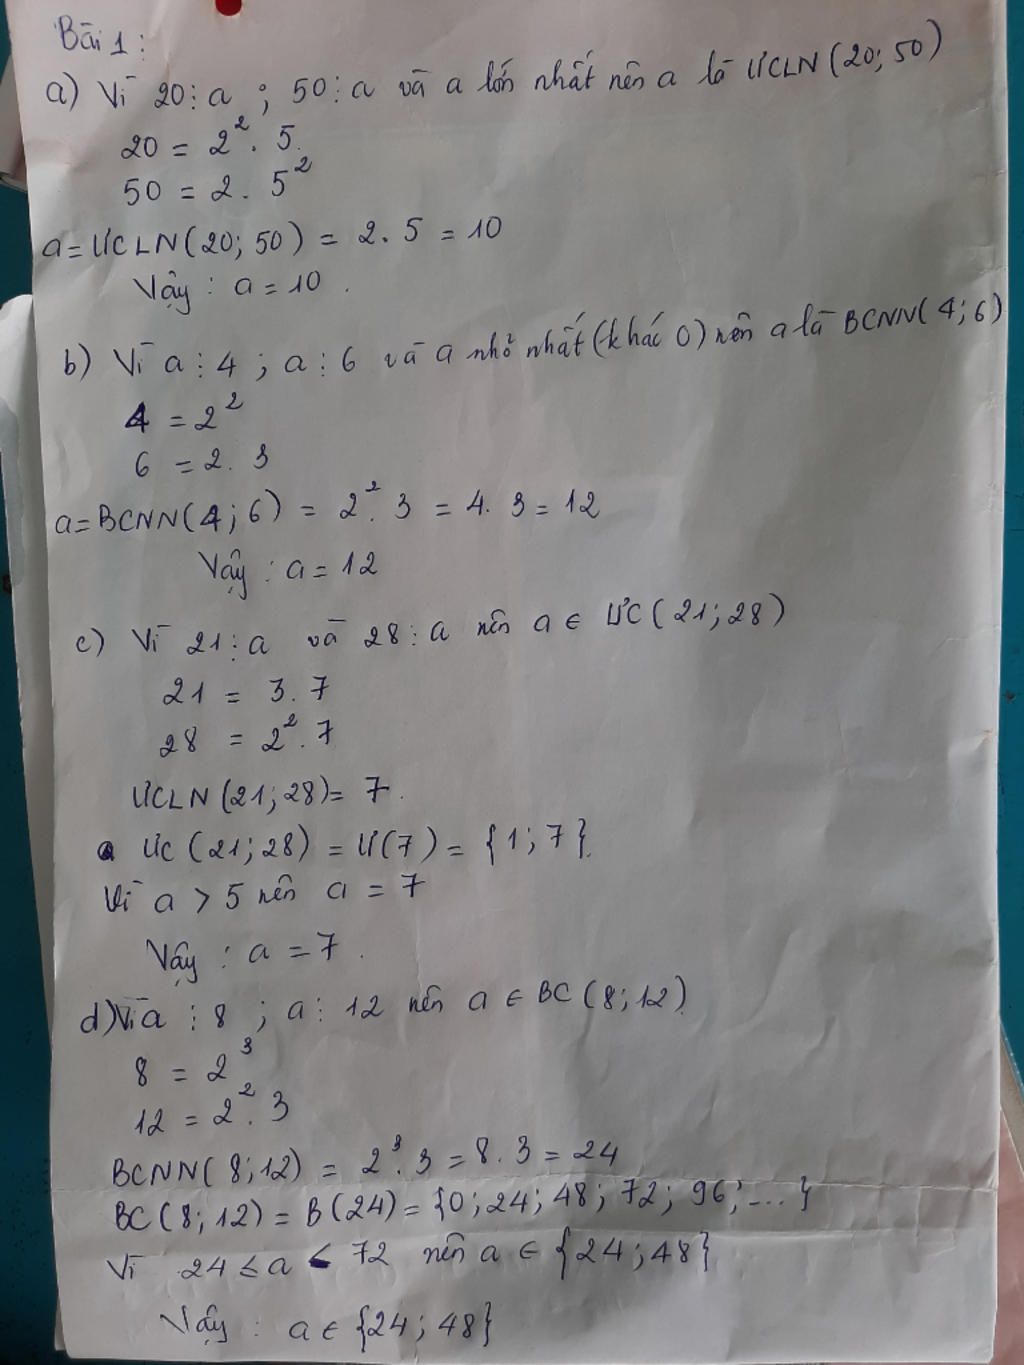 Bài 1:
a) Vì 20⋮a ; 50⋮a và a lớn nhất nên a là ƯCLN(20; 50)
20 = 2². 5.
50 = 2. 5²
a = ƯCLN(20; 50) = 2. 5 = 10
Vậy : a = 10 .
b) Vì a⋮4 ; a⋮6 và a nhỏ nhất (khác 0) nên a là BCNN(4; 6)
4 = 2²
6 = 2. 3
a = BCNN(4; 6) = 2². 3 = 4. 3 = 12
Vậy : a = 12
c) Vì 21⋮a và 28⋮a nên a ∈ ƯC(21; 28)
21 = 3. 7
28 = 2². 7
ƯCLN(21; 28) = 7.
ƯC (21; 28) = Ư(7) = {1; 7}.
Vì a > 5 nên a = 7
Vậy : a = 7 .
d) Vì a⋮8 ; a⋮12 nên a ∈ BC(8; 12)
8 = 2³
12 = 2². 3
BCNN(8; 12) = 2³. 3 = 8. 3 = 24
BC(8; 12) = B(24) = {0; 24; 48; 72; 96; ...}
Vì 24 ≤ a < 72 nên a ∈ {24; 48}
Vậy : a ∈ {24; 48}